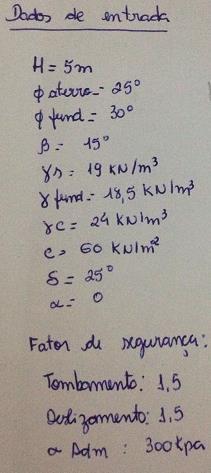 Dados de entrada
H = 5m
ϕ aterro = 25°
ϕ fund = 30°
β = 15°
γs = 19 KN/m³
γ fund = 18,5 KN/m³
γc = 24 KN/m³
c = 60 KN/m²
δ = 25°
α = 0
Fator de segurança:
Tombamento: 1,5
Deslizamento: 1,5
σ Adm : 300 Kpa